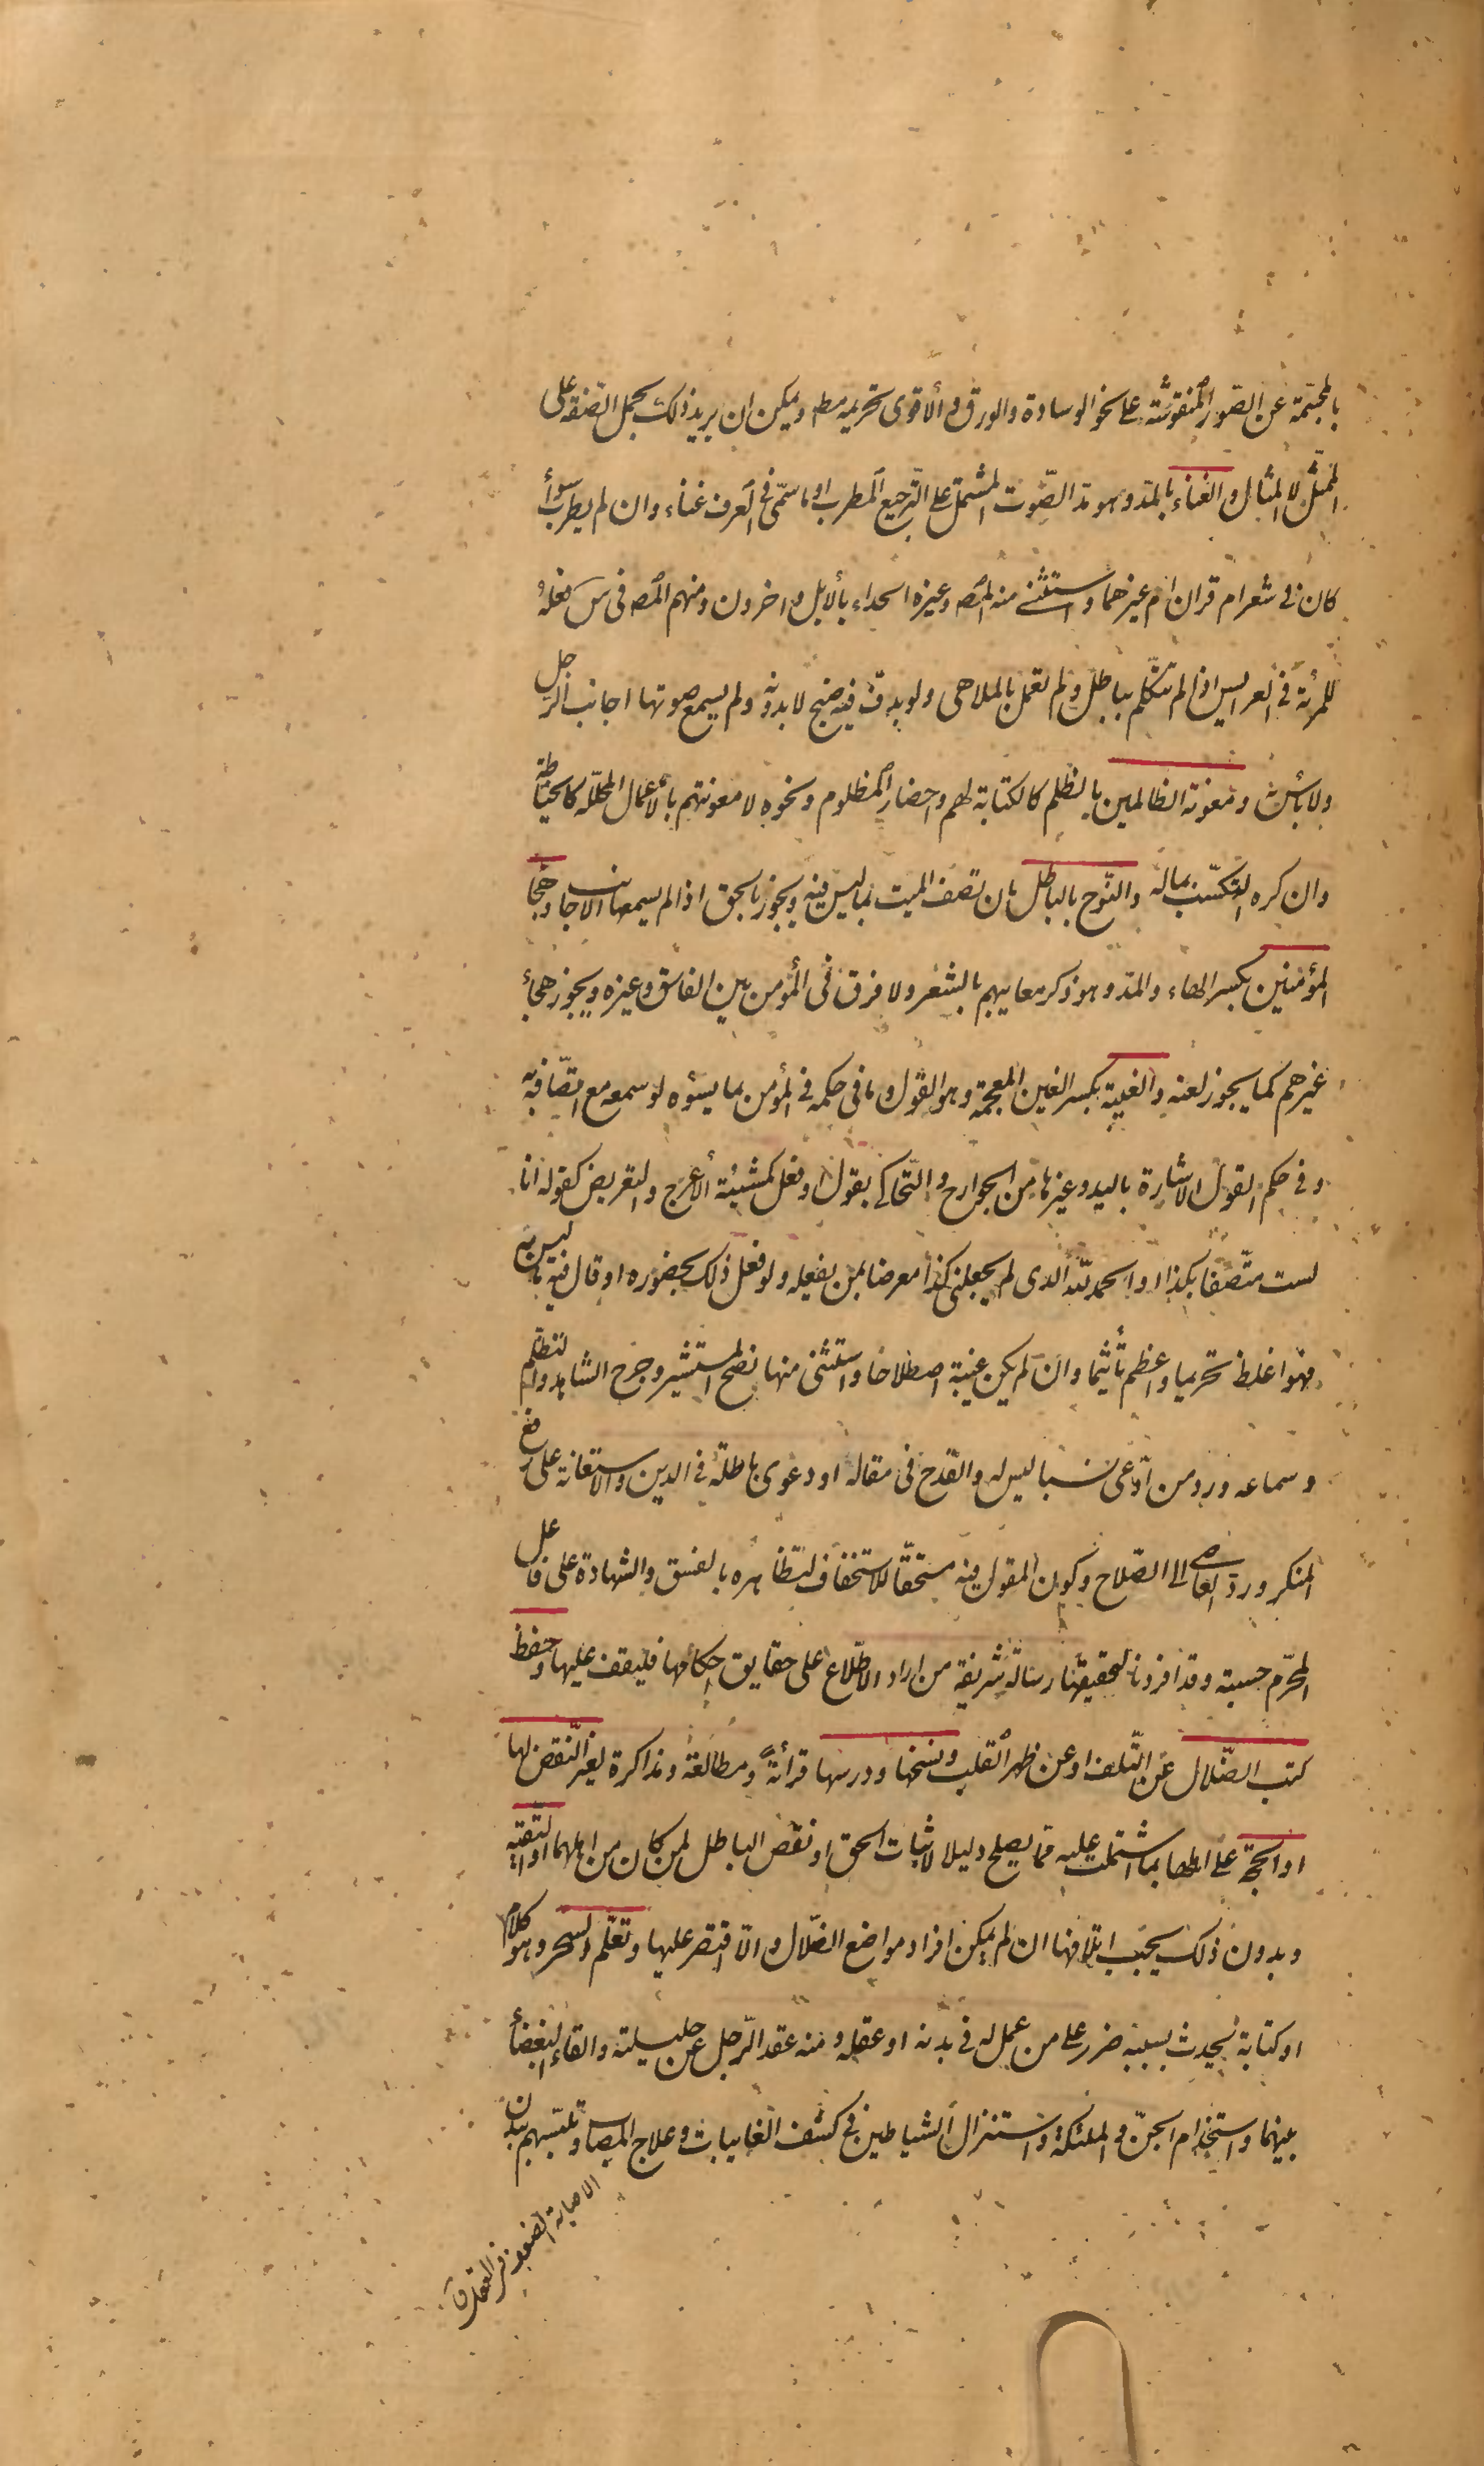 بالمجسّمة عن الصّور المنقوشة على نحو الوسادة والورق و الأقوى تحريمه مط ويمكن ان يريد ذلك بحمل الصّفة على
الممثّل لا المثال والغناء بالمدّ وهو مدّ الصّوت المشتمل على التّرجيع المطرب او ما سمّى فى العرف غناء وان لم يطرب سواء
كان فى شعر ام قران ام غيرهما واستثنى منه المصـ وغيره الحداء بالأبل و اخرون ومنهم المصـ فى س فعله
للمرئة فى العرايس اذا لم تتكلّم بباطل ولم تعمل بالملاهى ولو بدفّ فيه صنج لا بدونه ولم يسمع صوتها اجانب الرجل
ولا بأس به ومعونة الظالمين بالظلم كالكتابة لهم واحضار المظلوم ونحوه لا معونتهم بالأعمال المحلّلة كالخياطة
وان كره التكسّب بماله والنّوح بالباطل بان تصف الميت بما ليس فيه ويجوز بالحق اذا لم يسمعها الاجانب وهجاء
المؤمنين بكسر الهاء والمدّ وهو ذكر معايبهم بالشعر ولا فرق فى المؤمن بين الفاسق وغيره ويجوز هجاء
غيرهم كما يجوز لعنه والغيبة بكسر الغين المعجمة وهو القول وما فى حكمه فى المؤمن بما يسؤه لو سمعه مع اتّصافه به
وفى حكم القول الاشارة باليد وغيرها من الجوارح والتّحاكى بقول او فعل كمشيئة الأعرج والتعريض كقوله انا
لست متّصفا بكذا او الحمد للّه الذى لم يجعلنى كذا معرضا بمن يفعله ولو فعل ذلك بحضوره او قال فيه ما ليس به
فهو اغلظ تحريما واعظم تأثيما وان لم يكن غيبة اصطلاحا واستثنى منها نصح المستشير وجرح الشاهد والتظلّم
وسماعه ورد من ادّعى نسبا ليس له والقدح فى مقالة او دعوى باطلة فى الدين والاستعانة على دفع
المنكر وردّ العاصى الى الصّلاح وكون المقول فيه مستحقّا للاستخفاف لتظاهره بالفسق والشهادة على فاعل
المحرّم حسبة وقد افردنا لتحقيقها رسالة شريفة من اراد الاطّلاع على حقايق احكامها فليقف عليها وحفظ
كتب الضّلال عن التّلف او عن ظهر القلب ونسخها ودرسها قرائةً ومطالعة ومذاكرة لغير النّقض لها
او الحجّة على اهلها بما اشتملت عليه ممّا يصلح دليلا لاثبات الحق او نقض الباطل لمن كان من اهلهما او التقيّة
وبدون ذلك يجب اتلافها ان لم يمكن افراد مواضع الضّلال والّا اقتصر عليها وتعلّم السحر وهو كلام
او كتابة يحدث بسببه ضرر على من عمل له فى بدنه او عقله ومنه عقد الرّجل عن حليلته والقاء البغضاء
بينهما واستخدام الجنّ و الملئكة واستنزال الشياطين فى كشف الغايبات وعلاج المصاب وتلبّسهم ببدن